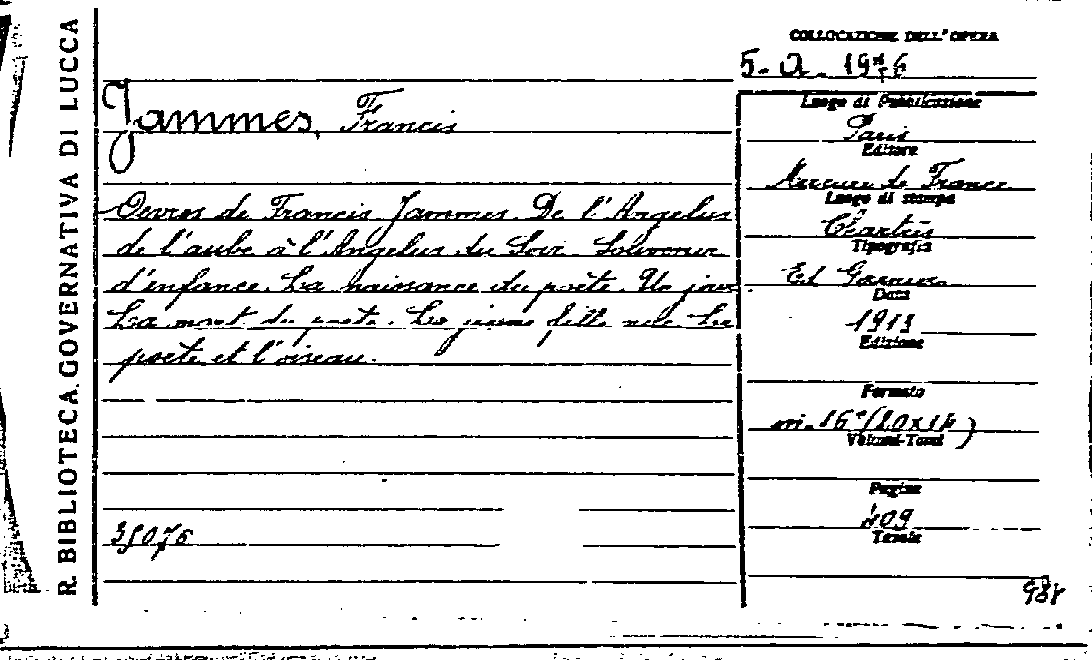 R. BIBLIOTECA GOVERNATIVA DI LUCCA
COLLOCAZIONE DELL'OPERA
5. a. 1976
Jammes, Francis
Oevres de Francis Jammes. De l'Angelus
de l'aube à l'Angelus du Soir. Souvenir
d'enfance. La naissance du poète. Un jour
La mort du poete. La jeune fille nue Le
poète et l'oiseau.
35076
Luogo di Pubblicazione
Paris
Editore
Mercure de France
Luogo di stampa
Chartres
Tipografia
Ed Garnier
Data
1913
Edizione
Formato
in-16° (20x14)
Volumi-Tomi
Pagine
409
Tavole